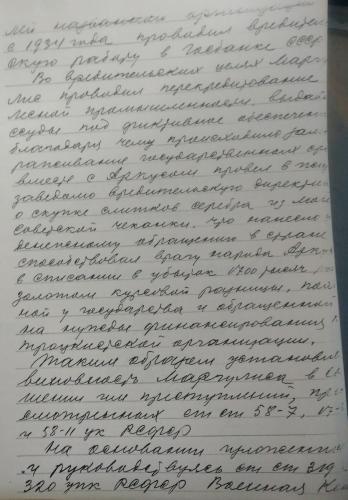 лей названной организации
с 1934 года проводил вредитель
скую работу в Госбанке СССР
Во вредительских целях Маргу
лис проводил перекредитование
лесной промышленности, выдавал
ссуды под фиктивное обеспечен
благодаря чему происходило зам
раживание государственных ср
вместе с Аркусом провел в жиз
заведомо вредительскую директи
о скупке слитков серебра из мон
советской чеканки, что нанесло у
денежному обращению в стране
способствовал врагу народа Арку
в списании в убыток 1700 тысяч
золотом курсовой разницы,
ной у государства и обращенной
на нужды финансирования
троцкистской организации.
Таким образом установил
виновность Маргулиса в со
шении им преступлений, пре
смотренных ст ст 58-7,
и 58-11 УК РСФСР
На основании изложенн
и руководствуясь ст ст 319
320 УПК РСФСР Военная Кол